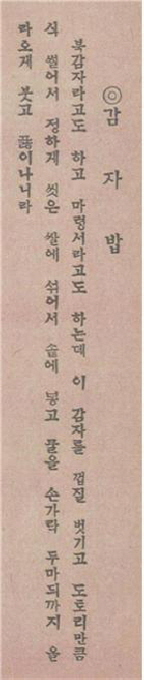 ◎감자밥
북감자라고도 하고 마령서라고도 하는데 이 감자를 껍질 벗기고 도토리만큼
식 썰어서 정하게 씻은 쌀에 섞어서 솥에 넣고 물을 손가락 두마듸까지 올
라오게 붓고 끓이나니라